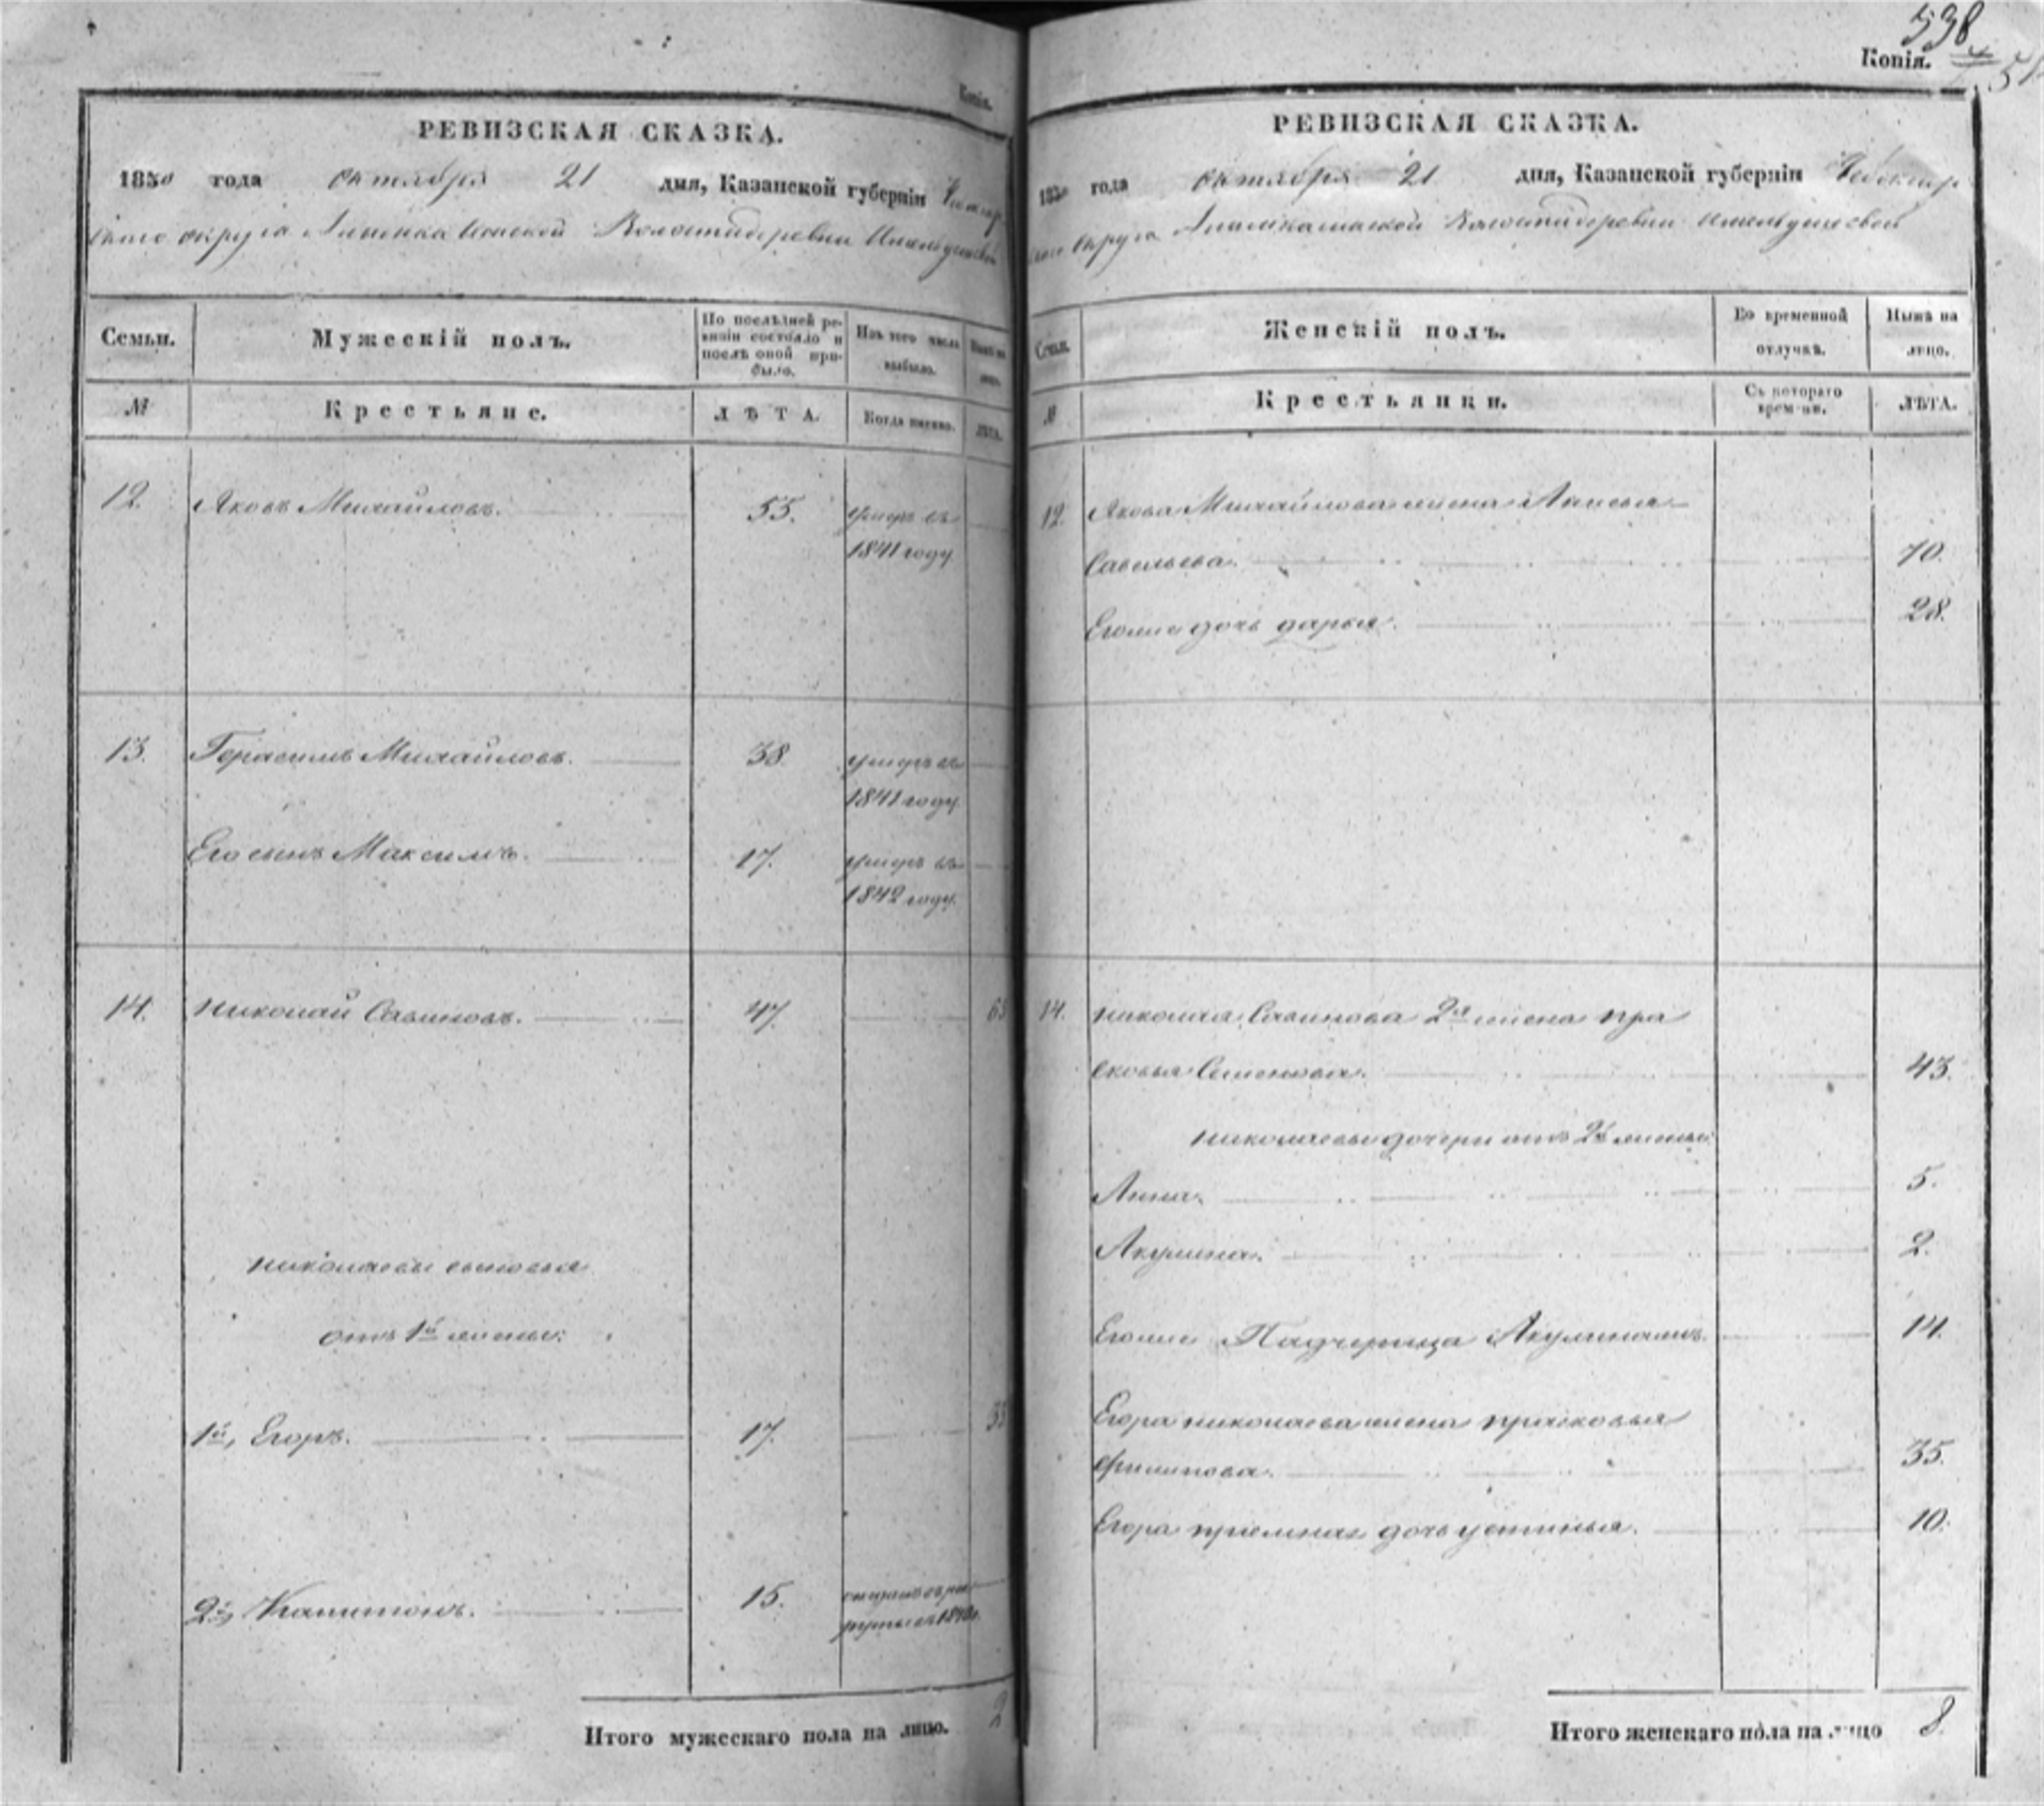 Копія.
РЕВИЗСКАЯ СКАЗКА.
1850 года октября 21 дня, Казанской губерніи Чебоксар
скаго округа Волости деревни
Семьи.
Мужескій полъ.
По послѣдней ре-
визіи состояло и
послѣ оной при-
было.
Изъ того числа
выбыло.
№
Крестьяне.
ЛѢТА.
Когда именно.
ЛѢТА.
12. Яковъ Михайловъ. 55. умеръ въ
1841 году
13. Герасимъ Михайловъ. 38. умеръ въ
1841 году.
Его сынъ Максимъ. 17. умеръ въ
1842 году.
14. Николай Савиновъ. 47. 63
николаевы сыновья
отъ 1й жены:
1й, Егоръ. 17. 33
2й, Капитонъ. 15. отданъ въ рек
руты въ
Итого мужескаго пола на лицо. 2
538
Копія.
РЕВИЗСКАЯ СКАЗКА.
1850 года октября 21 дня, Казанской губерніи Чебоксар
скаго округа Волости деревни
Семьи.
Женскій полъ.
Во временной
отлучкѣ.
Нынѣ на
лицо.
№
Крестьянки.
Съ котораго
времени.
ЛѢТА.
12. Якова Михайлова жена
Савельева. 70.
Егоже дочь дарья. 28.
14. николая Савинова 2я жена пра
сковья Семенова. 43.
николаевы дочери отъ 2й жены:
Анна. 5.
Акулина. 2.
Егоже Падчерица 14.
Егора николаева жена прасковья
филипова. 35.
Егора приемная дочь устинья. 10.
Итого женскаго пола на лицо 8.